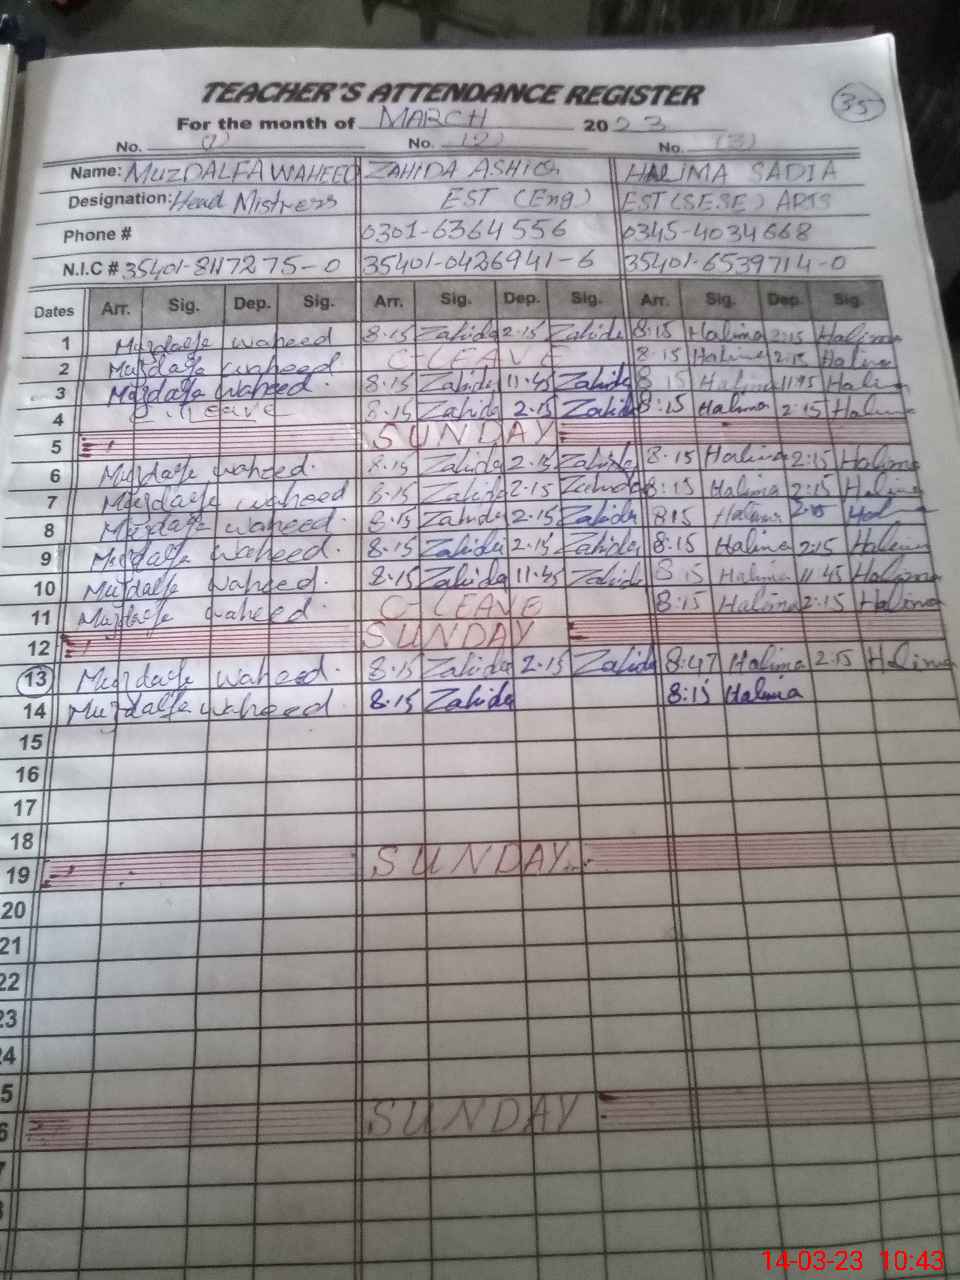 TEACHER'S ATTENDANCE REGISTER
35
For the month of MARCH 2023
No. (1) No. (2) No. (3)
Name: MUZDALFA WAHEED ZAHIDA ASHIQ HALIMA SADIA
Designation: Head Mistress EST (Eng) EST (SESE) ARTS
Phone # 0301-6364556 0345-4034668
N.I.C # 35401-8117275-0 35401-0426941-6 35401-6539714-0
Dates Arr. Sig. Dep. Sig. Arr. Sig. Dep. Sig. Arr. Sig. Dep. Sig.
1 Muzdalfa waheed 8:15 Zahida 2:15 Zahida 8:15 Halima 2:15 Halima
2 Muzdalfa waheed. C-LEAVE 8:15 Halima 2:15 Halima
3 Muzdalfa waheed. 8:15 Zahida 11:45 Zahida 8:15 Halima 11:45 Halima
4 Leave 8:15 Zahida 2:15 Zahida 8:15 Halima 2:15 Halima
5 SUNDAY
6 Muzdalfa waheed. 8:15 Zahida 2:15 Zahida 8:15 Halima 2:15 Halima
7 Muzdalfa waheed 8:15 Zahida 2:15 Zahida 8:15 Halima 2:15 Halima
8 Muzdalfa waheed. 8:15 Zahida 2:15 Zahida 8:15 Halima 2:15 Halima
9 Muzdalfa waheed. 8:15 Zahida 2:15 Zahida 8:15 Halima 2:15 Halima
10 Muzdalfa waheed. 8:15 Zahida 11:45 Zahida 8:15 Halima 11:45 Halima
11 Muzdalfa waheed. C-LEAVE 8:15 Halima 2:15 Halima
12 SUNDAY
13 Muzdalfa waheed. 8:15 Zahida 2:15 Zahida 8:47 Halima 2:15 Halima
14 Muzdalfa waheed. 8:15 Zahida 8:15 Halima
15
16
17
18
19 SUNDAY
20
21
22
23
24
5
6 SUNDAY
14-03-23 10:43